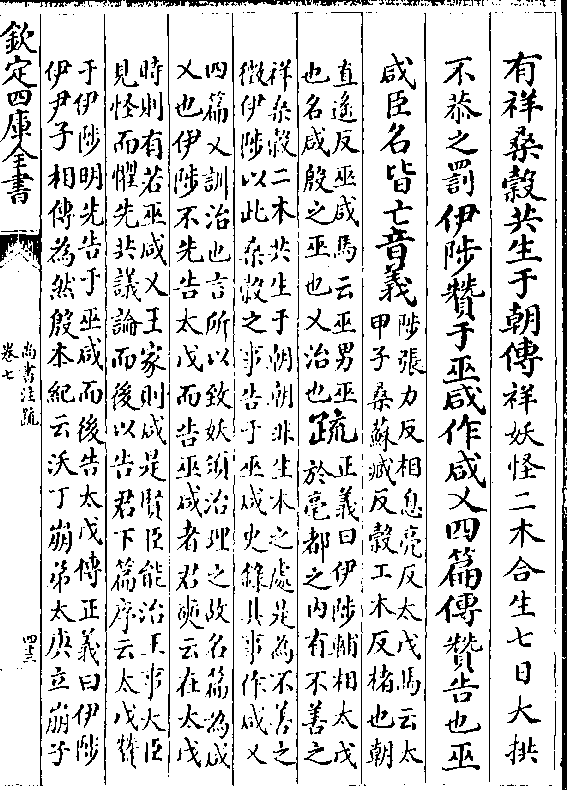 有祥桑榖共生于朝傳祥妖怪二木合生七日大拱
不恭之罰伊陟贊于巫咸作咸乂四篇傳贊告也巫
咸臣名皆亡音義
陟張力反相息亮反太戊馬云太
甲子桑蘇臧反榖工木反楮也朝
直遙反巫咸馬云巫男巫
也名咸殷之巫也乂治也
疏
正義曰伊陟輔相太戊
於亳都之内有不善之
祥桑榖二木共生于朝朝非生木之處是為不善之
徵伊陟以此桑榖之事告于巫咸史錄其事作咸乂
四篇乂訓治也言所以致妖須治理之故名篇為咸
乂也伊陟不先告太戊而告巫咸者君奭云在太戊
時則有若巫咸乂王家則咸是賢臣能治王事大臣
見怪而懼先共議論而後以告君下篇序云太戊贊
于伊陟明先告于巫咸而後告太戊傳正義曰伊陟
伊尹子相傳為然殷本紀云沃丁崩弟太庚立崩子
欽定四庫全書
尚書注疏
卷七
四三